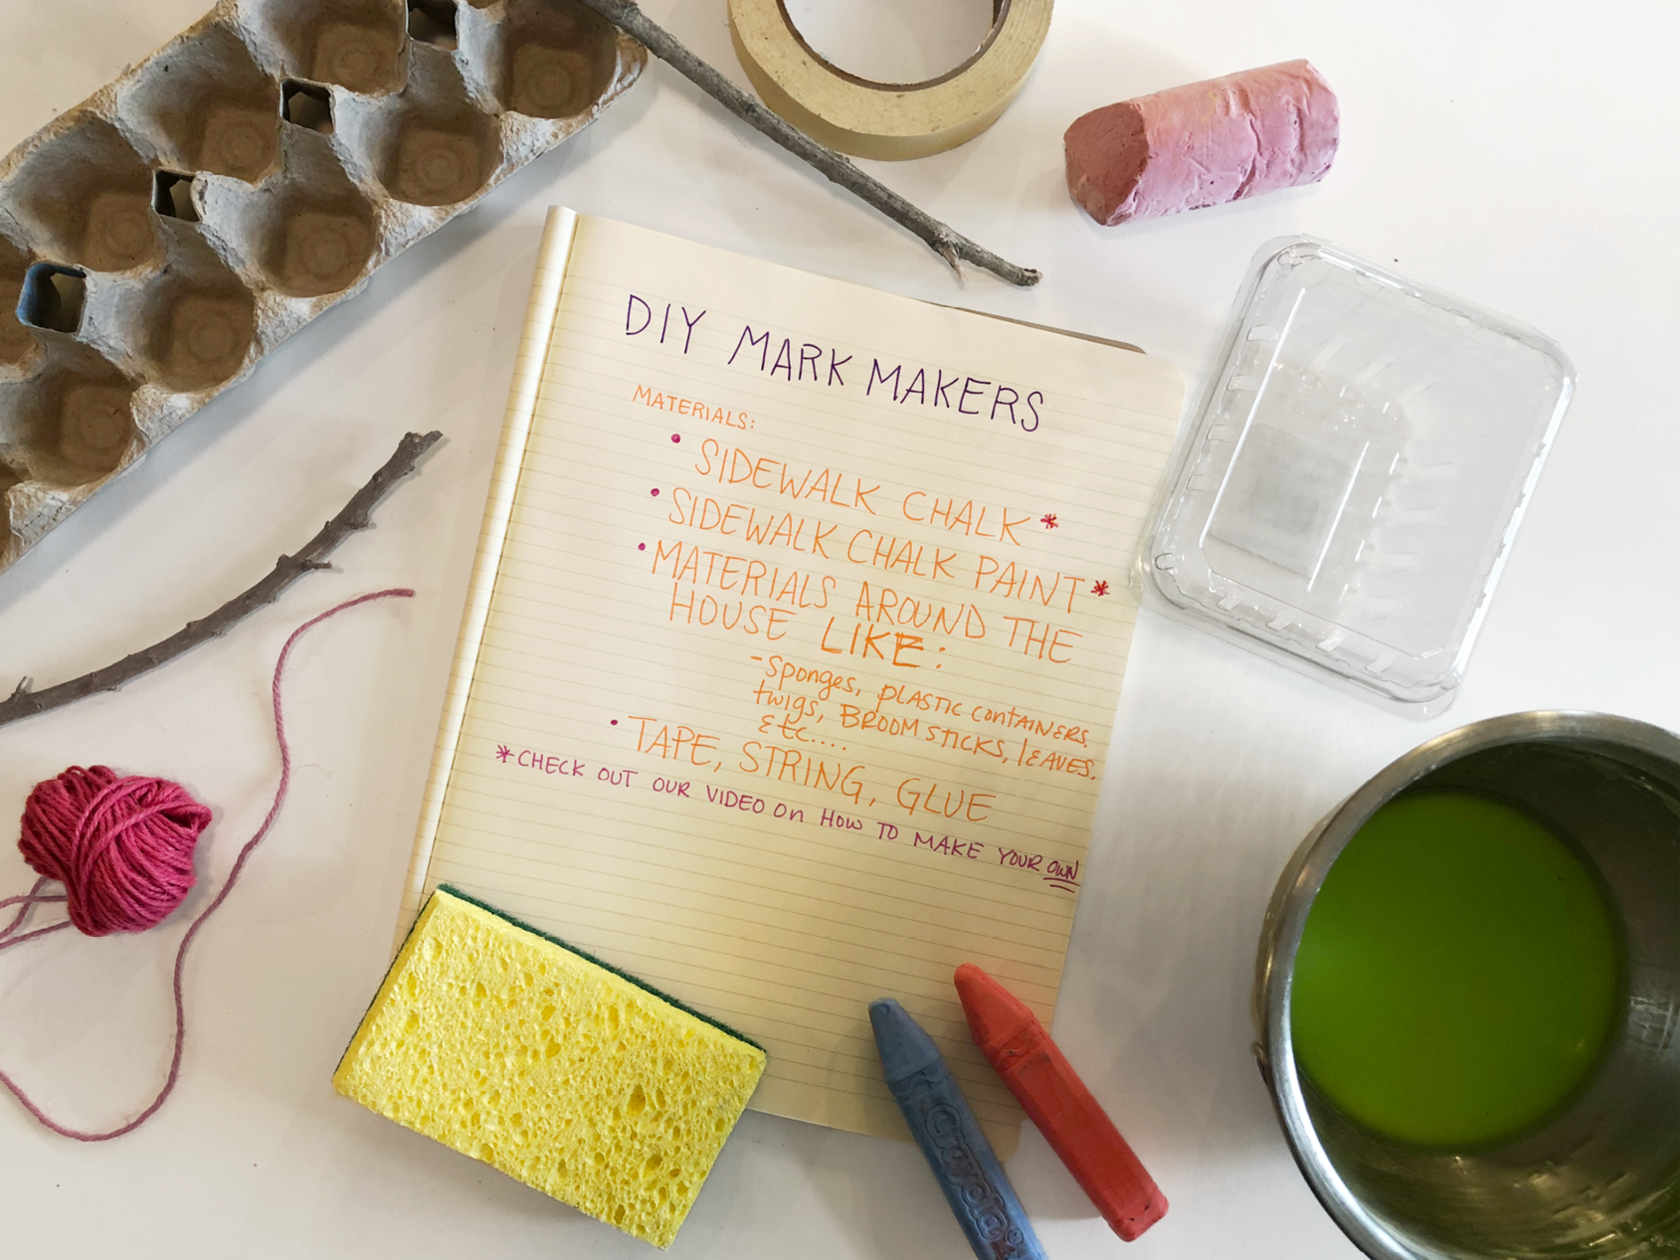 DIY MARK MAKERS
MATERIALS:
• SIDEWALK CHALK*
• SIDEWALK CHALK PAINT*
• MATERIALS AROUND THE
HOUSE LIKE:
- sponges, PLASTIC CONTAINERS,
twigs, BROOM STICKS, lEAVES,
Etc....
• TAPE, STRING, GLUE
*CHECK OUT OUR VIDEO On HOW TO MAKE YOUR OWN
Crayola